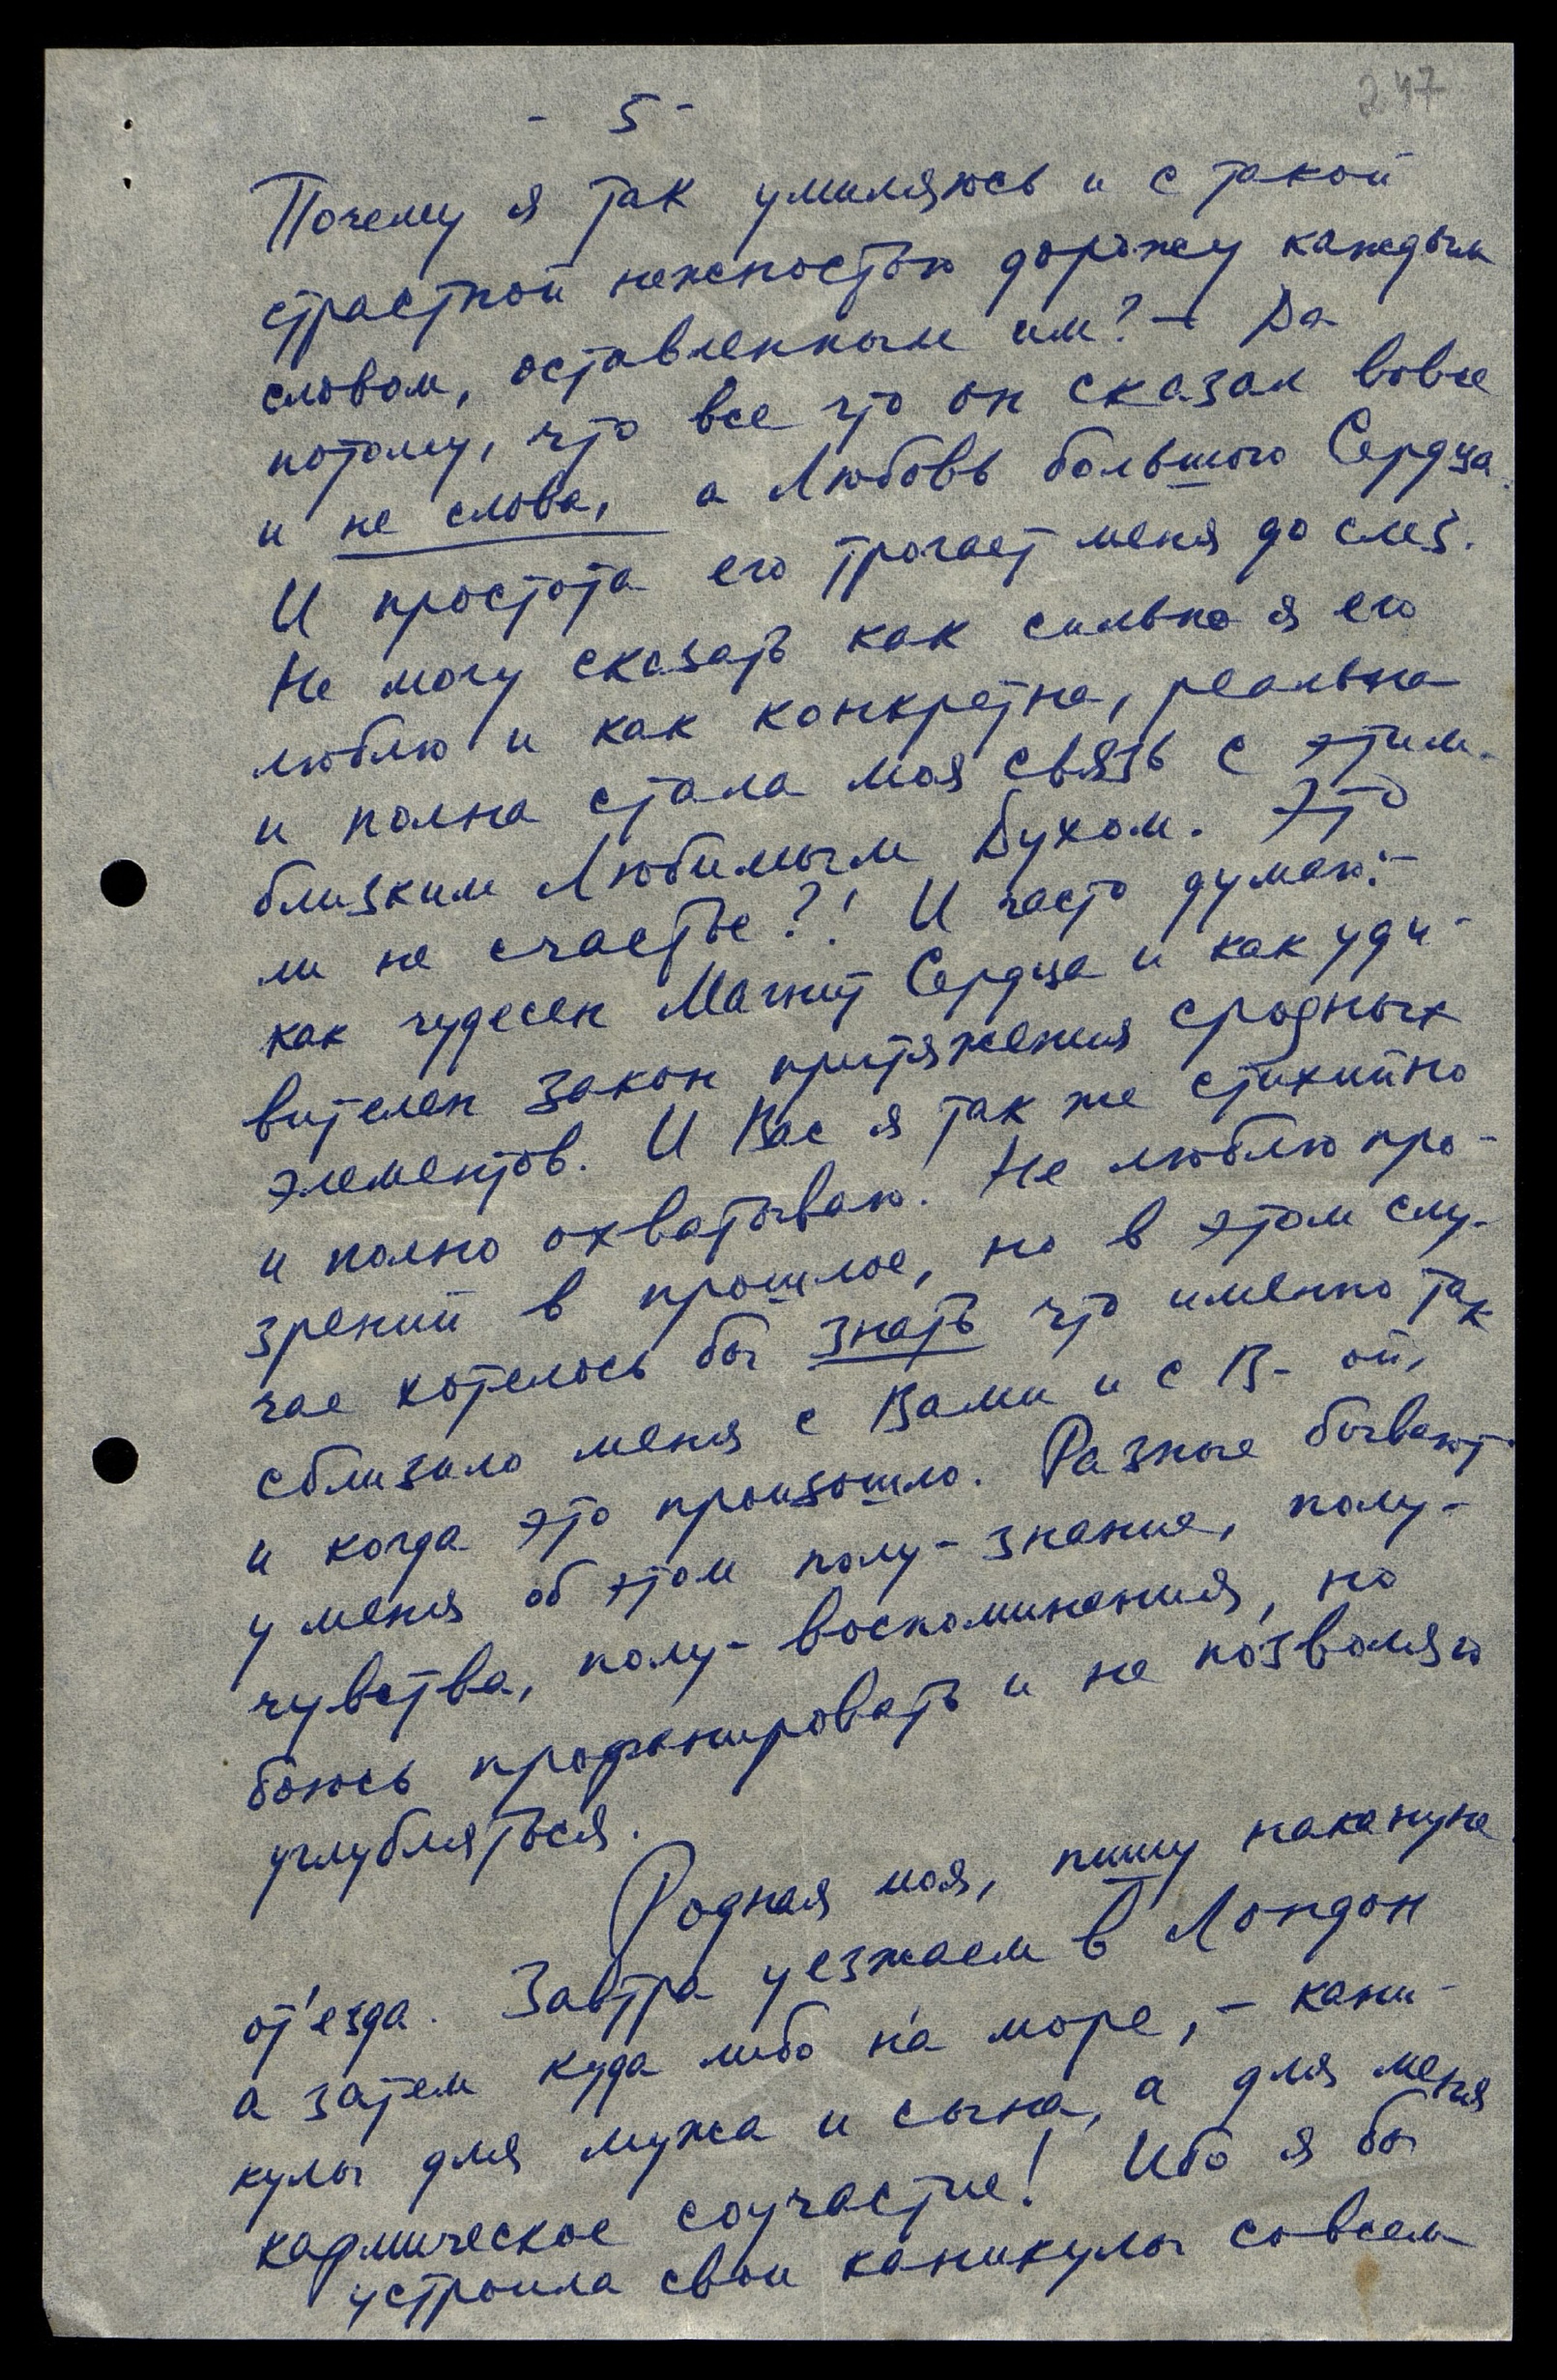 247
- 5 -
Почему я так умиляюсь и с такой
страстной нежностью дорожу каждым
словом, оставленным им? - Да
потому, что все что он сказал вовсе
и не слова, а Любовь большого Сердца.
И простота его трогает меня до слез.
Не могу сказать как сильно я его
люблю и как конкретна, реальна
и полна стала моя связь с этим
близким Любимым Духом. Это
ли не счастье?! И часто думаю:-
как чудесен Магнит Сердца и как уди-
вителен закон притяжения сродных
элементов. И Вас я так же стихийно
и полно охватываю. Не люблю про-
зрений в прошлое, но в этом слу-
чае хотелось бы знать что именно так
сблизило меня с Вами и с В- ой,
и когда это произошло. Разные бывают
у меня об этом полу-знание, полу-
чувства, полу-воспоминания, но
боюсь профанировать и не позволяю
углубляться.
Родная моя, пишу накануне
от'езда. Завтра уезжаем в Лондон
а затем куда либо на море, - кани-
кулы для мужа и сына, а для меня
кармическое соучастие! Ибо я бы
устроила свои каникулы совсем